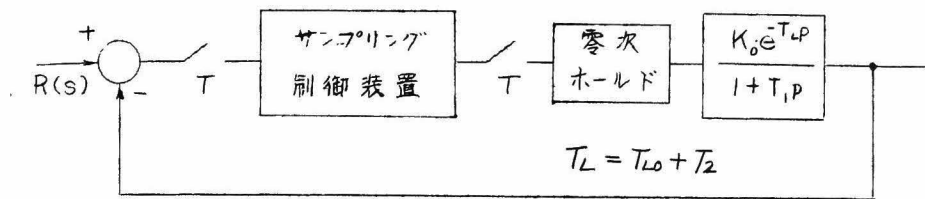 +
R(s)
-
T
サンプリング
制御装置
T
零次
ホールド
K₀e^{-T_L p}
1 + T₁p
T_L = T_{L0} + T₂